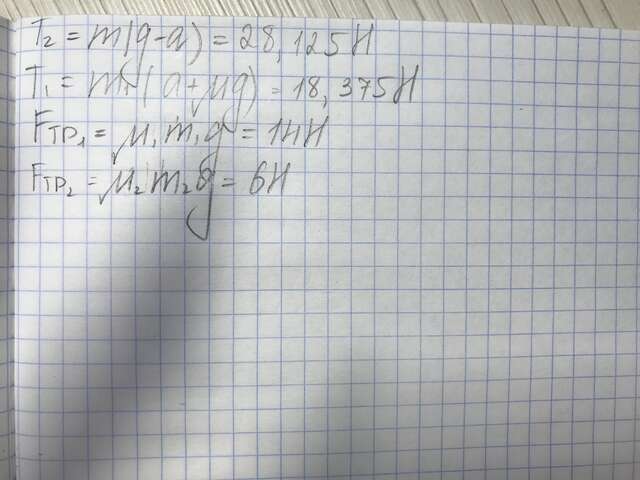 T₂ = m(g-a) = 28,125H
T₁ = m₁(a+μg) = 18,375H
Fтр₁ = μ₁m₁g = 14H
Fтр₂ = μ₂m₂g = 6H